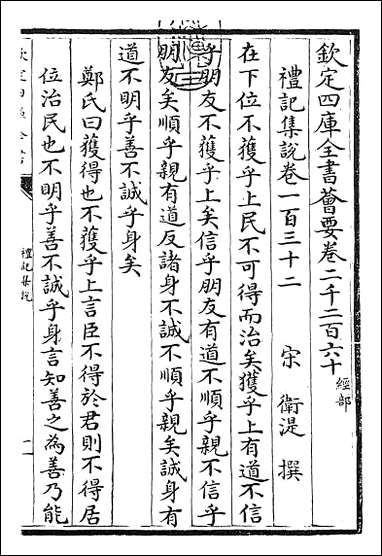 欽定四庫全書薈要卷二千二百六十 經部
禮記集說卷一百三十二 宋 衛湜 撰
在下位不獲乎上民不可得而治矣獲乎上有道不信
乎朋友不獲乎上矣信乎朋友有道不順乎親不信乎
朋友矣順乎親有道反諸身不誠不順乎親矣誠身有
道不明乎善不誠乎身矣
鄭氏曰獲得也不獲乎上言臣不得於君則不得居
位治民也不明乎善不誠乎身言知善之為善乃能
禮記集說
一